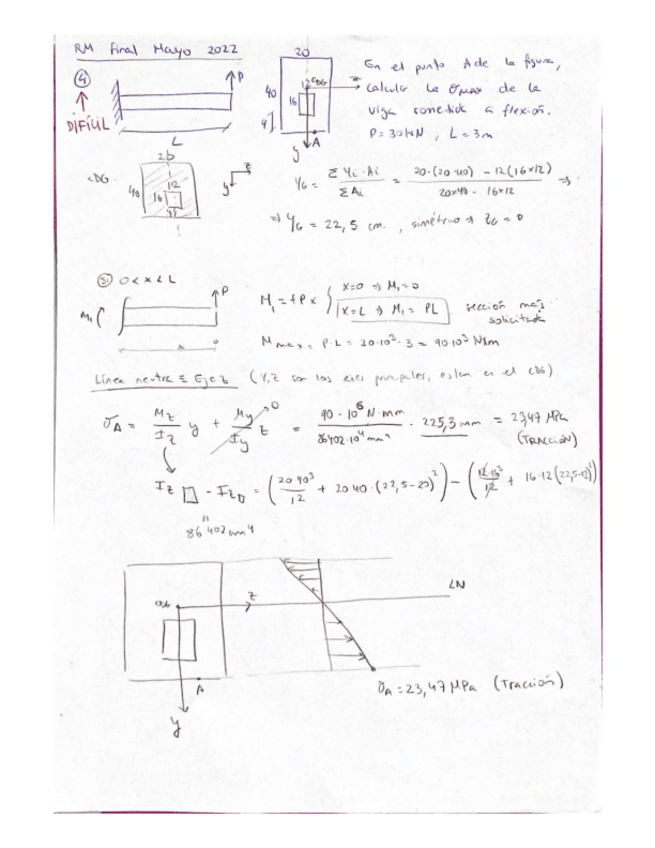 RM Final Mayo 2022
④
DIFÍCIL
P
L
20
40
12
CDG
z
16
4
A
y
En el punto A de la figura,
calcular la σmax de la
viga sometida a flexión.
P=30kN, L=3m
CDG
20
40
12
16
z
y
YG = Σ Yi·Ai / Σ Ai = 20·(20·40) - 12(16×12) / 20×40 - 16×12 ⇒
⇒ YG = 22,5 cm., simétrico ⇒ ZG = 0
Si 0<x<L
M1
P
x
M1 = +Px { x=0 ⇒ M1=0
x=L ⇒ M1 = PL
sección más
solicitada
Mmax = P·L = 30·10³·3 = 90·10³ N×m
Línea neutra ≡ Eje z (Y,Z son los ejes principales, están en el CDG)
σA = Mz/Iz y + My/Iy z = 90·10⁶ N·mm / 86402·10⁴ mm⁴ · 225,3 mm = 23,47 MPa
(TRACCIÓN)
0
Iz □ - Iz □ = (20 40³/12 + 20 40·(22,5-20)²) - (12·16³/12 + 16·12(22,5-12)²)
"
86402 cm⁴
CDG
z
LN
A
y
σA = 23,47 MPa (Tracción)